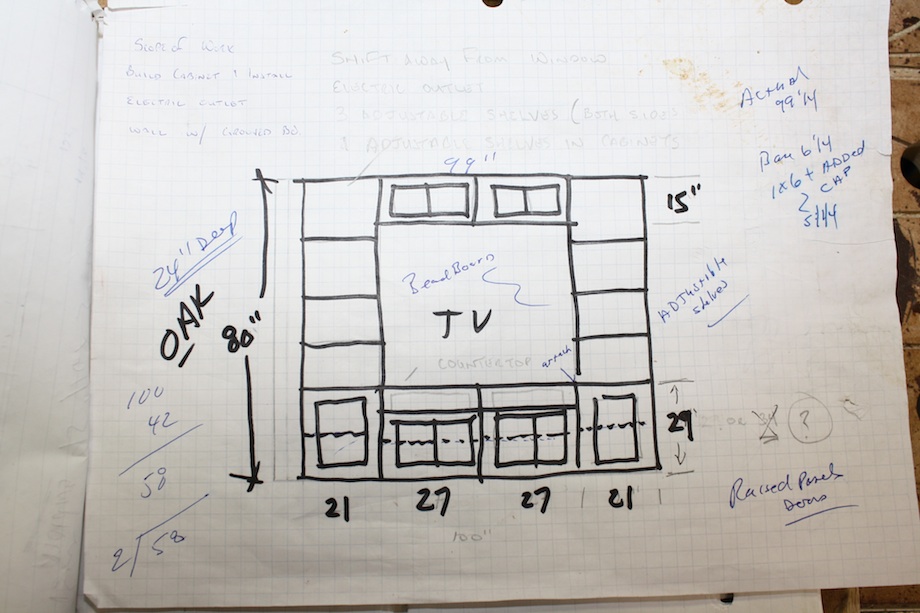 Scope of Work
Build Cabinet & Install
Electric outlet
Wall w/
Shift Away From Window
Electric outlet
3 Adjustable Shelves (Both Sides
Adjustable Shelves in Cabinets
99"
Actual
99 1/4
6 1/4
1x6 + Added
Cap
5 1/4
15"
24" Deep
OAK
80"
BeadBoard
TV
Adjustable
shelves
Countertop
attach
29"
?
100
42
58
2)58
21 27 27 21
100"
Raised Panel
Doors